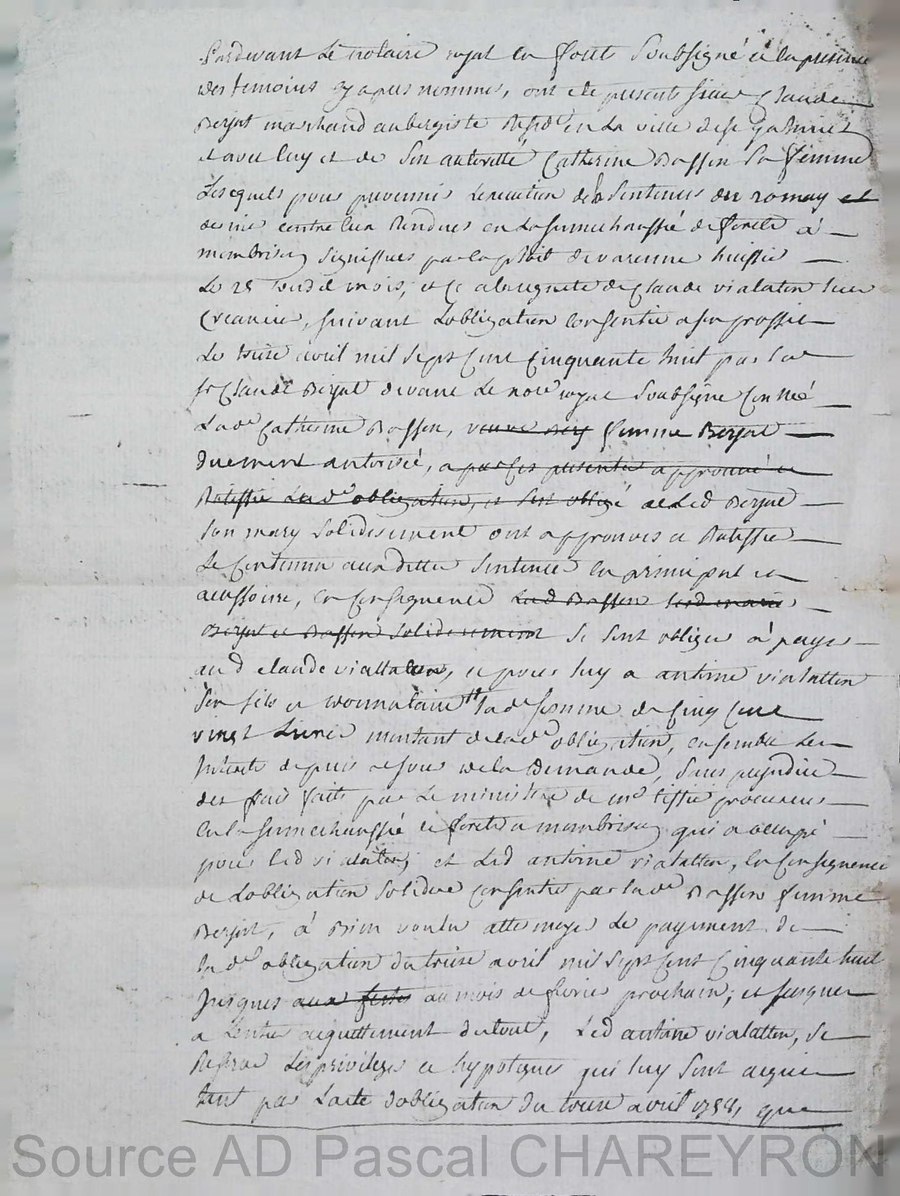 Pardevant Le notaire royal en foretz Soubsigné et en la presence
des temoins cy apres nommes, ont ete present sieur Claude
Berjat marchand aubergiste Resid<sup>t</sup> en La ville de st galmier
et avec luy et de Son autorité Catherine Bassen Sa femme
Lesquels pour prevenir Lexecution des Sentences
contre eux Rendues en La Senechaussée de foretz à
montbrison Signiffiees par Exploit de varenne huissier
Le 25 du d mois, et ce a la requete de Claude vialatin leur
Creancier, suivant Lobligation Consentie a son proffit
Le treize avril mil sept Cent Cinquante huit par led
sr Claude Berjat devant Le no<sup>re</sup> royal Soubsigne
Lad<sup>e</sup> Catherine Bassen, femme Berjat
duement autorisée, a par ces presentes approuvé et
Ratiffie Lad<sup>e</sup> obligation, et sest obligé Led Berjat
Son mary Solidairement ont approuvés et Ratiffie
Le Contenu aux dittes Sentences en principal et
accessoire, en Consequence Lad Bassen
Berjat et Bassen Solidairement Se sont obliges à payer
aud Claude viallatin, et pour luy a antoine vialatton
Son fils et donnataire lad<sup>e</sup> somme de Cinq Cent
vingt Livres montant de lad<sup>e</sup> obligation, ensemble Les
Interets depuis le jour de la demande, Sans prejudice
des frais faits par Le ministere de m<sup>e</sup> procureur
en la Senechaussée de foretz a montbrison qui a occupé
pour Led vialaton; et Led antoine vialatton, en Consequence
de Lobligation Solidaire Consentie par lad<sup>e</sup> Bassen femme
Berjat, à Bien voulu attermoyer Le payement de
lad<sup>e</sup> obligation du treize avril mil sept Cent Cinquante huit
Jusques aux festes au mois de fevrier prochain; et jusques
a Lentier acquittement du tout, Led antoine vialatton, Se
Reserve Les privileges et hypoteques qui luy Sont acquis
tant par Lacte dobligation du treize avril 1758, que
Source AD Pascal CHAREYRON